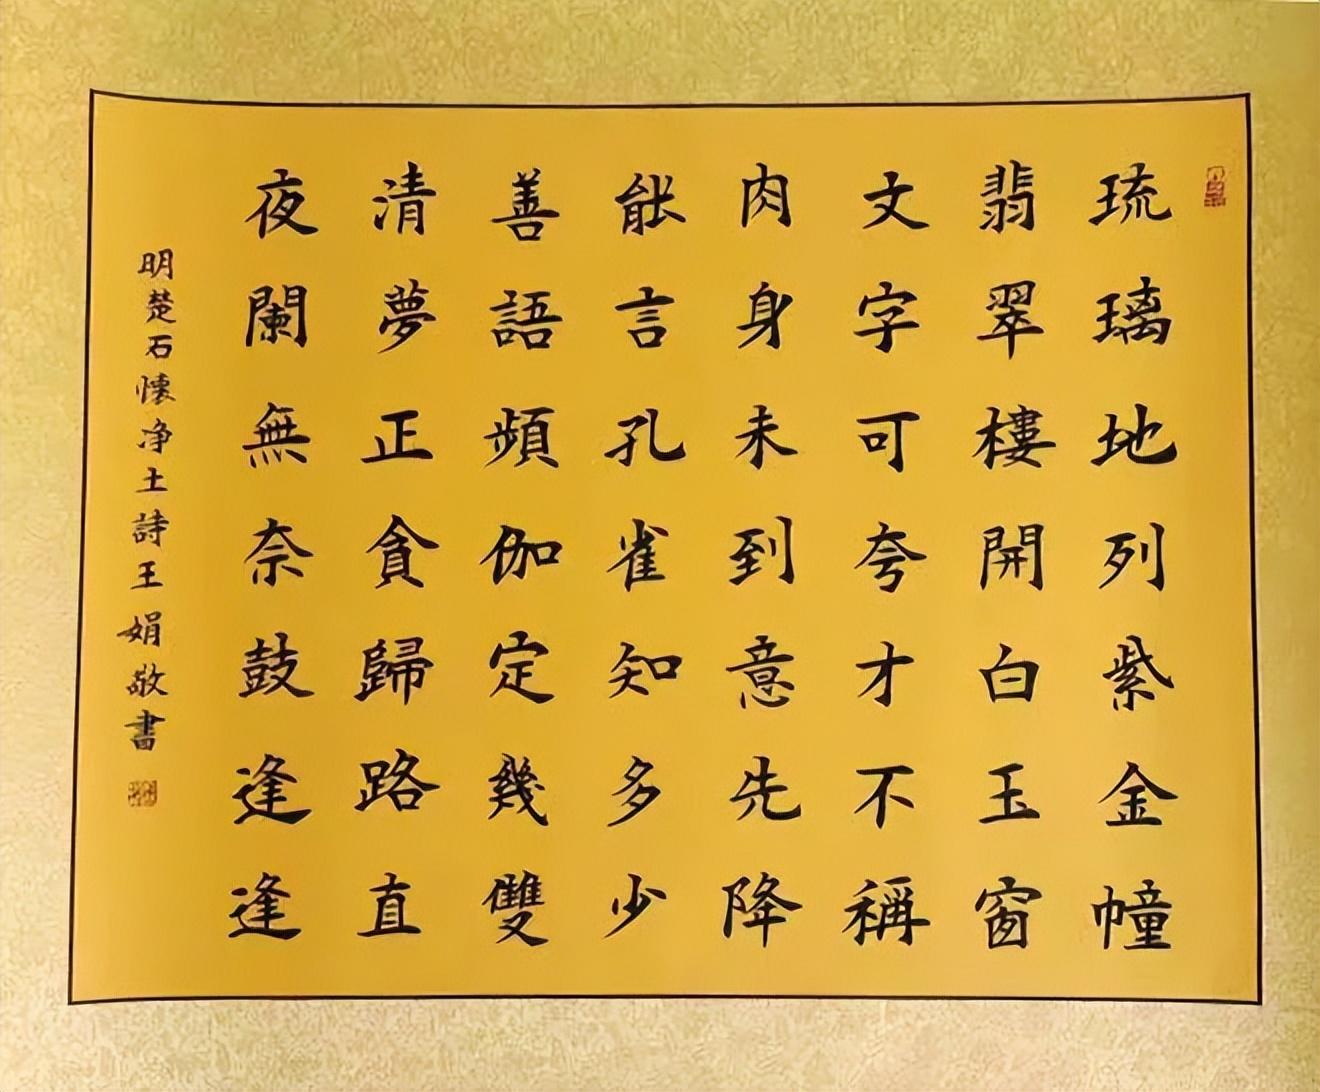 琉璃地列紫金幢
翡翠樓開白玉窗
文字可夸才不稱
肉身未到意先降
能言孔雀知多少
善語頻伽定幾雙
清夢正貪歸路直
夜闌無奈鼓逢逢
明楚石懷净土詩王娟敬書